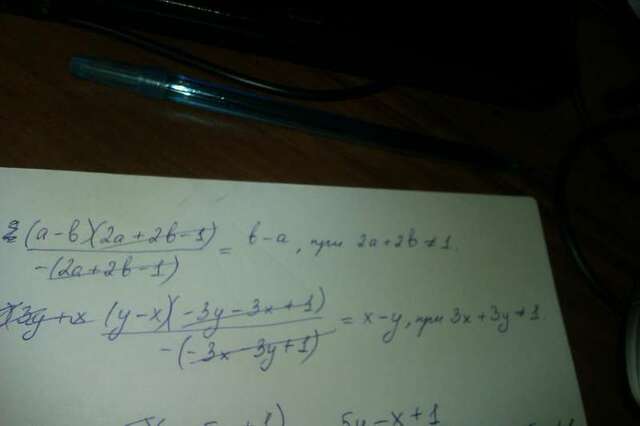 (a-b)(2a+2b-1)
-(2a+2b-1)
= b-a, при 2a+2b≠1.
(y-x)(-3y-3x+1)
-(-3x-3y+1)
= x-y, при 3x+3y≠1.
5y-x+1